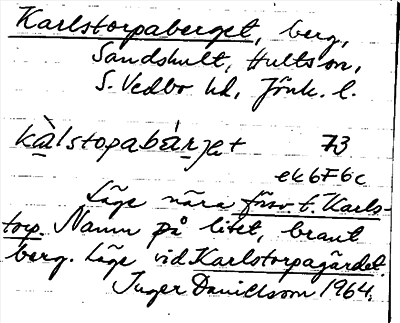 Karlstorpaberget, berg,
Sandshult, Hults sn,
S. Vedbo hd, Jönk. l.
kàlstopabárjet 73
ek6F6c
Läge nära förv. t. Karls-
torp. Namn på litet, brant
berg. Läge vid Karlstorpagärdet.
Inger Danielsson 1964.